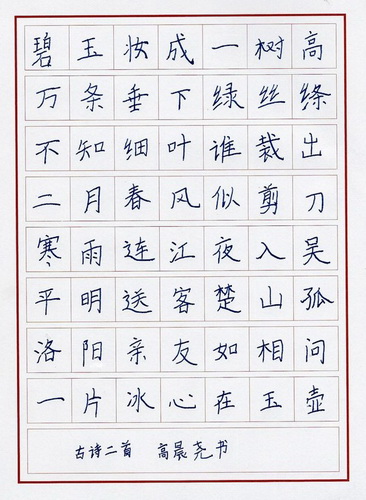 碧玉妆成一树高
万条垂下绿丝绦
不知细叶谁裁出
二月春风似剪刀
寒雨连江夜入吴
平明送客楚山孤
洛阳亲友如相问
一片冰心在玉壶
古诗二首 高晨尧书